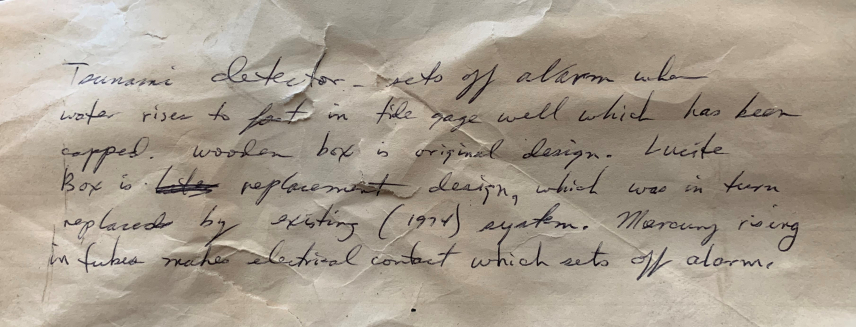 Tsunami detector - sets off alarm when
water rises to fast in tide gage well which has been
capped. wooden box is original design. Lucite
Box is replacement design, which was in turn
replaced by existing (1974) system. Mercury rising
in tubes makes electrical contact which sets off alarm.